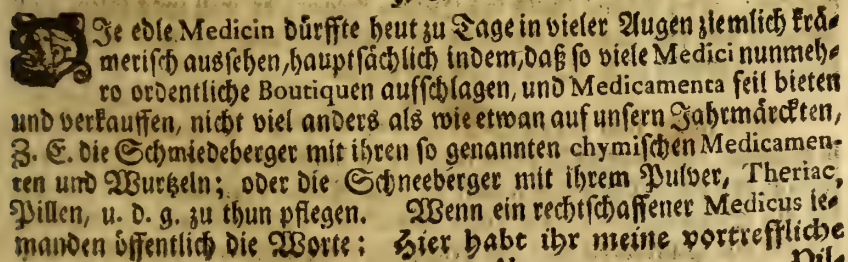 DIe edle Medicin dürffte heut zu Tage in vieler Augen ziemlich krä-
merisch aussehen, hauptsächlich indem, daß so viele Medici nunmeh-
ro ordentliche Boutiquen auffschlagen, und Medicamenta feil bieten
und verkauffen, nicht viel anders als wie etwan auf unsern Jahrmärckten,
Z. E. die Schmiedeberger mit ihren so genannten chymischen Medicamen-
ten und Wurtzeln; oder die Schneeberger mit ihrem Pulver, Theriac,
Pillen, u. d. g. zu thun pflegen. Wenn ein rechtschaffener Medicus ie-
manden öffentlich die Worte: Hier habt ihr meine vortreffliche
Pil-